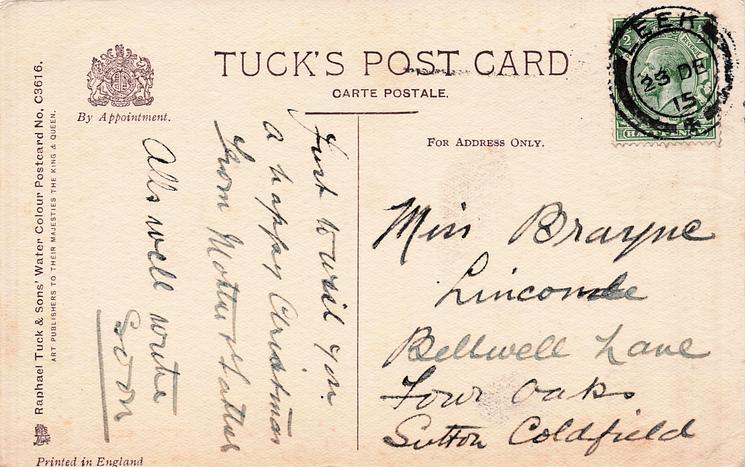 TUCK'S POST CARD
CARTE POSTALE.
By Appointment.
FOR ADDRESS ONLY.
Raphael Tuck & Sons' Water Colour Postcard No. C3616.
ART PUBLISHERS TO THEIR MAJESTIES THE KING & QUEEN.
Printed in England
LEEK
23 DE
15
HALFPENNY
Just to wish you
a happy Christmas
from Mother & Father
Alls well write
Soon
Miss Brayne
Lincombe
Bellwell Lane
Four Oaks
Sutton Coldfield